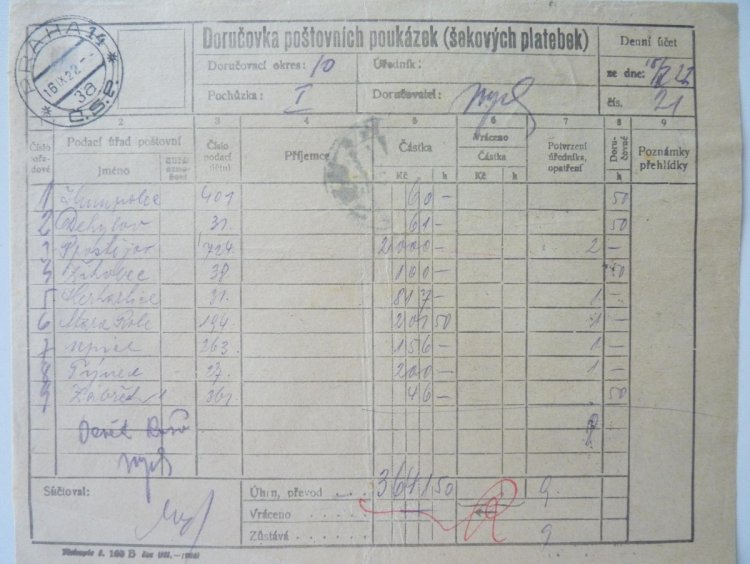 PRAHA 14
16.IX.22.
3a
Č.S.P.
Doručovka poštovních poukázek (šekových platebek)
Denní účet
Doručovací okres: 10
Úředník:
ze dne:
Pochůzka: I
Doručovatel:
čís. 21
1 2 3 4 5 6 7 8 9
Číslo
Podací úřad poštovní
jméno
Číslo podací
Příjemce
Částka
Kč h
Vráceno
Částka
Kč h
Potvrzení úředníka, opatření
Doručovné
Poznámky přehlídky
1 Humpolec 401 60 — 50
2 Dehylov 31 61 — 50
3 Prostějov 724 2000 — 2 —
4 38 100 — 50
5 31 817 — 1 —
6 194 201 50 1 —
7 Úpice 263 156 — 1 —
8 Týnec 27 200 — 1 —
9 Zábřeh 361 46 — 50
Devět
Súčtoval:
Úhrn, převod 3641 50 9
Vráceno
Zůstává 9